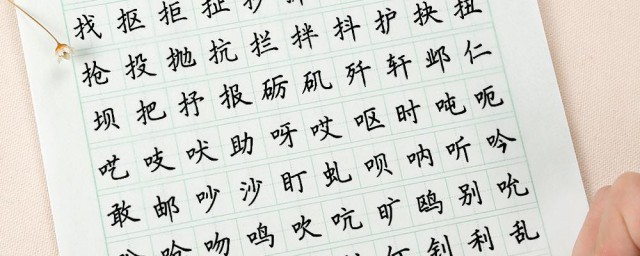 找 抠 拒 扯 抄
抢 投 抛 抗 拦 拌 抖 护 抉 扭
坝 把 抒 报 砺 矶 歼 轩 邺 仁
呓 吱 吠 助 呀 哎 呕 时 吨 呃
敢 邮 吵 沙 盯 虬 呗 呐 听 吟
吻 鸣 吹 吭 旷 鸥 别 吮
钊 利 乱